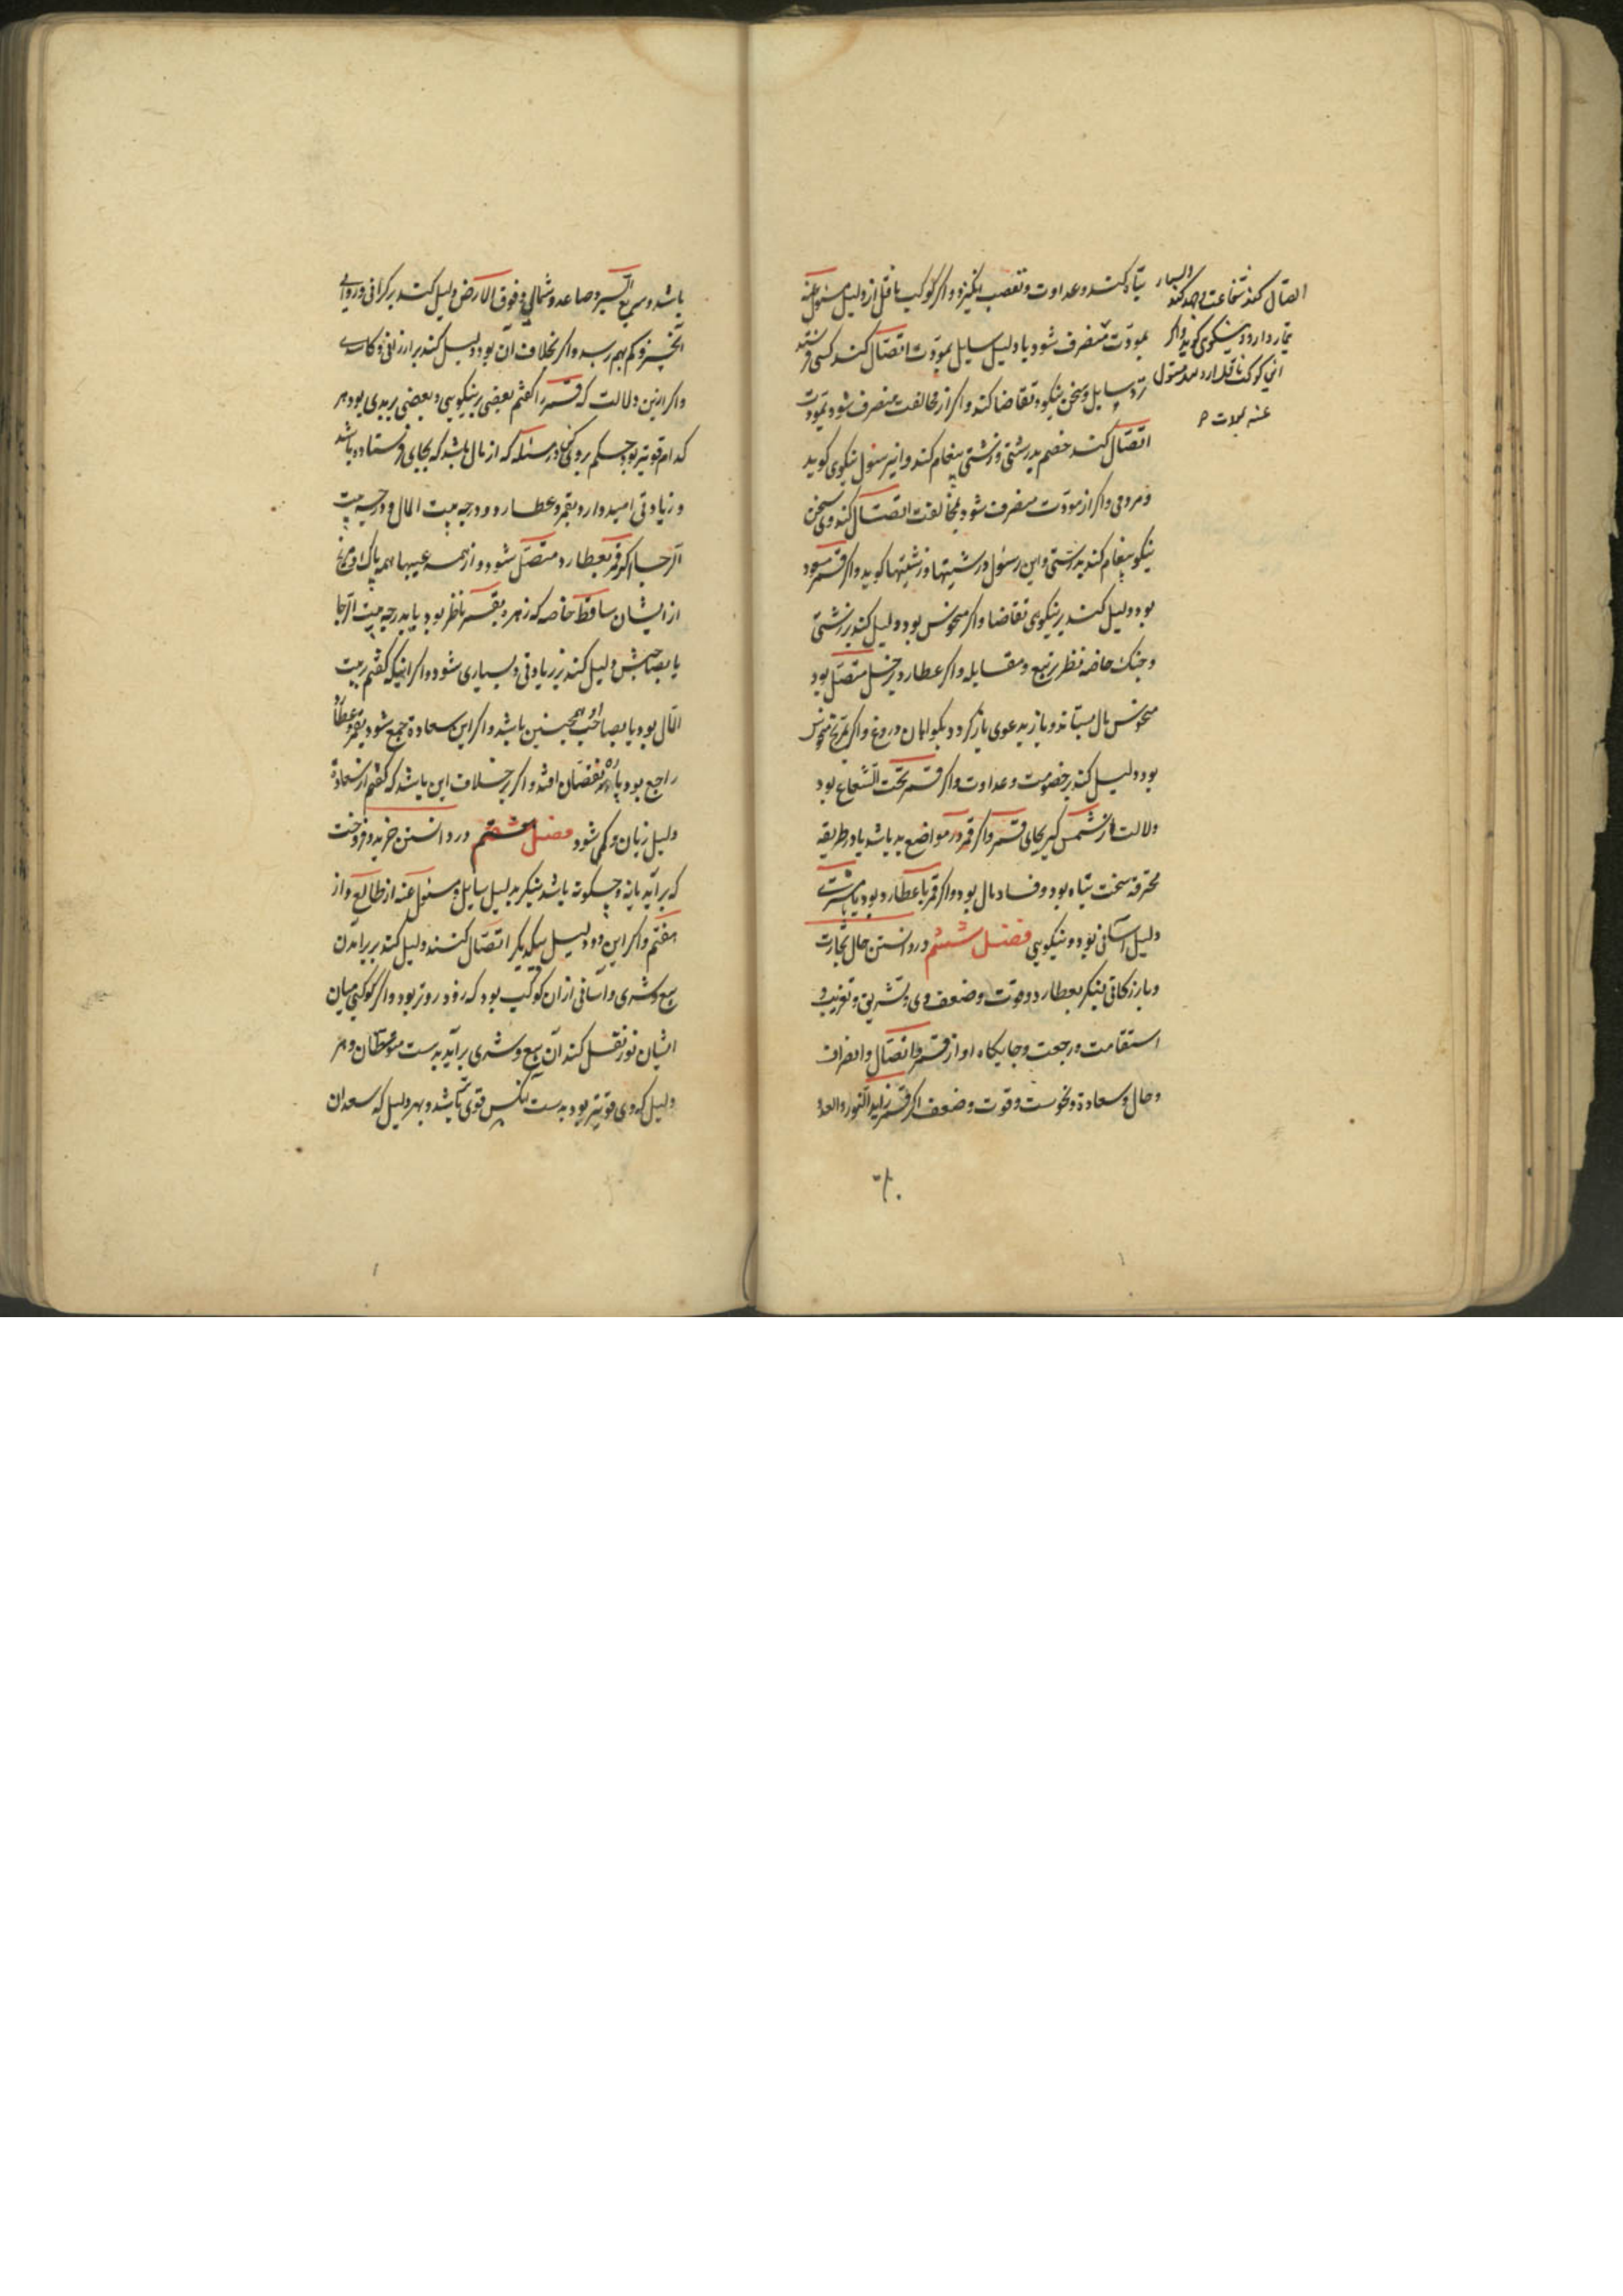 تباه کند و عداوت و تعصب انگیزد و اگر کوکب ناقل از دلیل مسئول عنه
بمودّت منصرف شود یا دلیل سایل بمودّت اتّصال کند کسی فرستد
نزد سایل و سخن نیکو و تقاضا کند و اگر از مخالفت منصرف شود بمودت
اتّصال کند خصم بدرشتی و زشتی پیغام کند و این رسول نیکوی کوید
و مردمی و اگر از مودّت منصرف شود و بمخالفت اتصال کند وی سخن
نیکو پیغام کند بدرستی و این رسول درشتیها و زشتیها کوید و اگر قمر مسعود
بود دلیل کند بر نیکوی تقاضا و اگر منحوس بود دلیل کند بر زشتی
و جنک خاصه نظر تربیع و مقابله و اگر عطارد بزحل متصل بود
منحوس مال بستاند و باز بدعوی باز کردد دروغ و اگر بمریخ منحوس
بود دلیل کند بر خصومت و عداوت و اگر قمر تحت الشعاع بود
دلالت از شمس کیر بجای قمر و اگر قمر در مواضع بد باشد یا در طریقه
محترقه سخت تباه بود و فساد مال بود و اگر قمر با عطارد بود مباشرت
دلیل آسانی بود و نیکویی فصل ششم در دانستن حال تجارت
و بازرکانی بنکر بعطارد و قوت و ضعف وی و تشریق و تغریب و
استقامت و رجعت و جایکاه او از قمر و اتصال و انصراف
و حال و سعادة و نحوست و قوت و ضعف اگر قمر زاید النور و العدد
اتصال کند شفاعت و جهد کند
تیمار دارد و نیکوی کوید و اگر
این کوکب ناقل مسئول
عنه بمودت
باشد و سریع السیر و صاعد و شمالی و فوق الارض دلیل کند بر کرانی و روایی
آنچیز و کم بهم رسد و اگر بخلاف آن بود دلیل کند بر ارزانی و کاسدی
و اگر ازین دلالت که قمر را کفتم بعضی بر نیکویی و بعضی بر بدی بود هر
کدام قویتر بود حکم بر وی کن و در مسئله که از مال باشد که بجای فرستاده باشد
و زیادتی امید دارد بقمر و عطارد و درجه بیت المال و درجه بیت
الرجا اگر قمر بعطارد متصل شود و از همه عیبها همه پاک و مریخ
از ایشان ساقط خاصه که زهره بقمر ناظر بود یا بدرجه بیت الرجا
یا بصاحبش دلیل کند بر زیادتی و بسیاری شود و اگر اینکه کفتم در بیت
المال بود یا بصاحب او همچنین باشد و اگر این سعادة جمع شود بقمر و عطارد
راجع بود پاره نقصان افتد و اگر بر خلاف این باشد که کفتم از سعادة
دلیل زیان و کمی شود فصل هفتم در دانستن خرید و فروخت
که برآید یا نه و چکونه باشد بنکر بدلیل سایل و مسئول عنه از طالع و از
هفتم و اگر این دو دلیل بیکدیگر اتصال کنند دلیل کند بر برآمدن
بیع و شری و آسانی از آن کوکب بود که زود روتر بود و اگر کوکبی میان
ایشان نور نقل کند آن بیع و شری برآید بدست متوسطان و هر
دلیل که وی قویتر بود بدست آنکس قوی باشد و بهر دلیل که سعدان